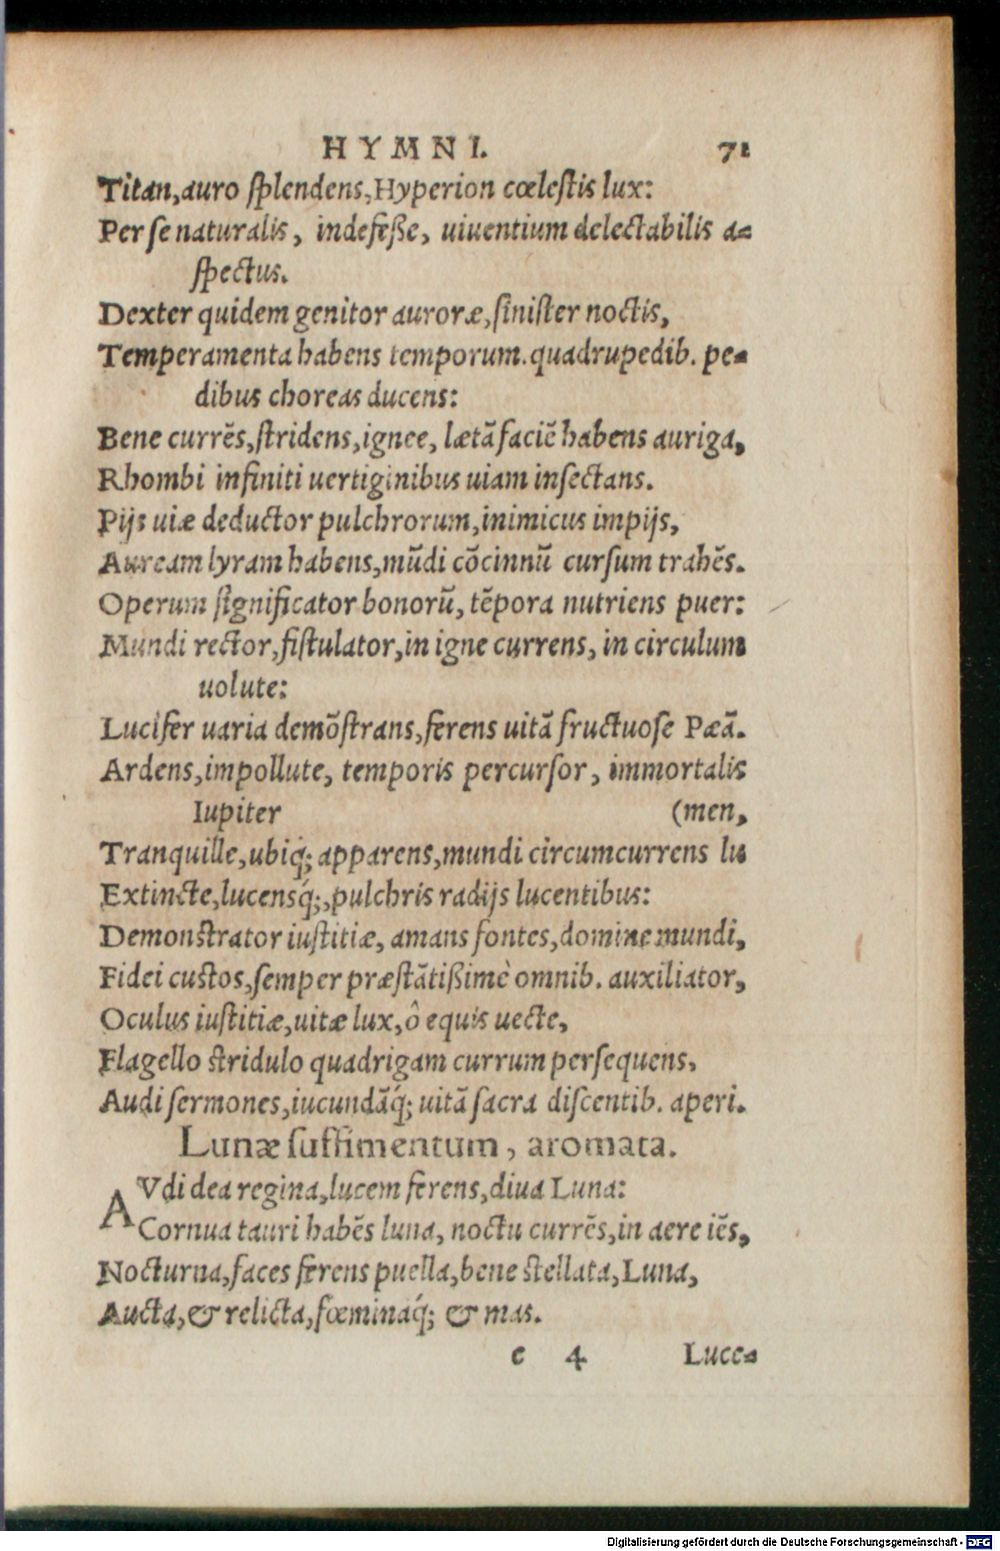 HYMNI. 71
Titan, auro splendens, Hyperion cœlestis lux:
Per se naturalis, indefeße, uiuentium delectabilis a-
spectus.
Dexter quidem genitor auroræ, sinister noctis,
Temperamenta habens temporum. quadrupedib. pe-
dibus choreas ducens:
Bene currẽs, stridens, ignee, lætã faciẽ habens auriga,
Rhombi infiniti uertiginibus uiam insectans.
Pijs uiæ deductor pulchrorum, inimicus impijs,
Auream lyram habens, mũdi cõcinnũ cursum trahẽs.
Operum significator bonorũ, tẽpora nutriens puer:
Mundi rector, fistulator, in igne currens, in circulum
uolute:
Lucifer uaria demõstrans, ferens uitã fructuose Pæã.
Ardens, impollute, temporis percursor, immortalis
Iupiter (men,
Tranquille, ubiq́; apparens, mundi circumcurrens lu
Extincte, lucensq́;, pulchris radijs lucentibus:
Demonstrator iustitiæ, amans fontes, domine mundi,
Fidei custos, semper præstãtißimè omnib. auxiliator,
Oculus iustitiæ, uitæ lux, ô equis uecte,
Flagello stridulo quadrigam currum persequens,
Audi sermones, iucundãq́; uitã sacra discentib. aperi.
Lunæ suffimentum, aromata.
AVdi dea regina, lucem ferens, diua Luna:
Cornua tauri habẽs luna, noctu currẽs, in aere iẽs,
Nocturna, faces ferens puella, bene stellata, Luna,
Aucta, & relicta, fœminaq́; & mas.
e 4 Luce-
Digitalisierung gefördert durch die Deutsche Forschungsgemeinschaft - DFG